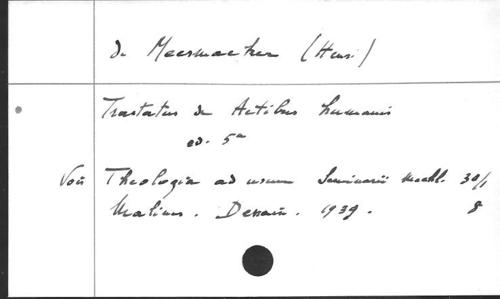 de Meesmaeker (Henri)
Tractatus de Actibus humanis
ed. 5a
Voir Theologia ad usum Seminarii Mechl. 30/1
Malines. Dessain. 1939. 8